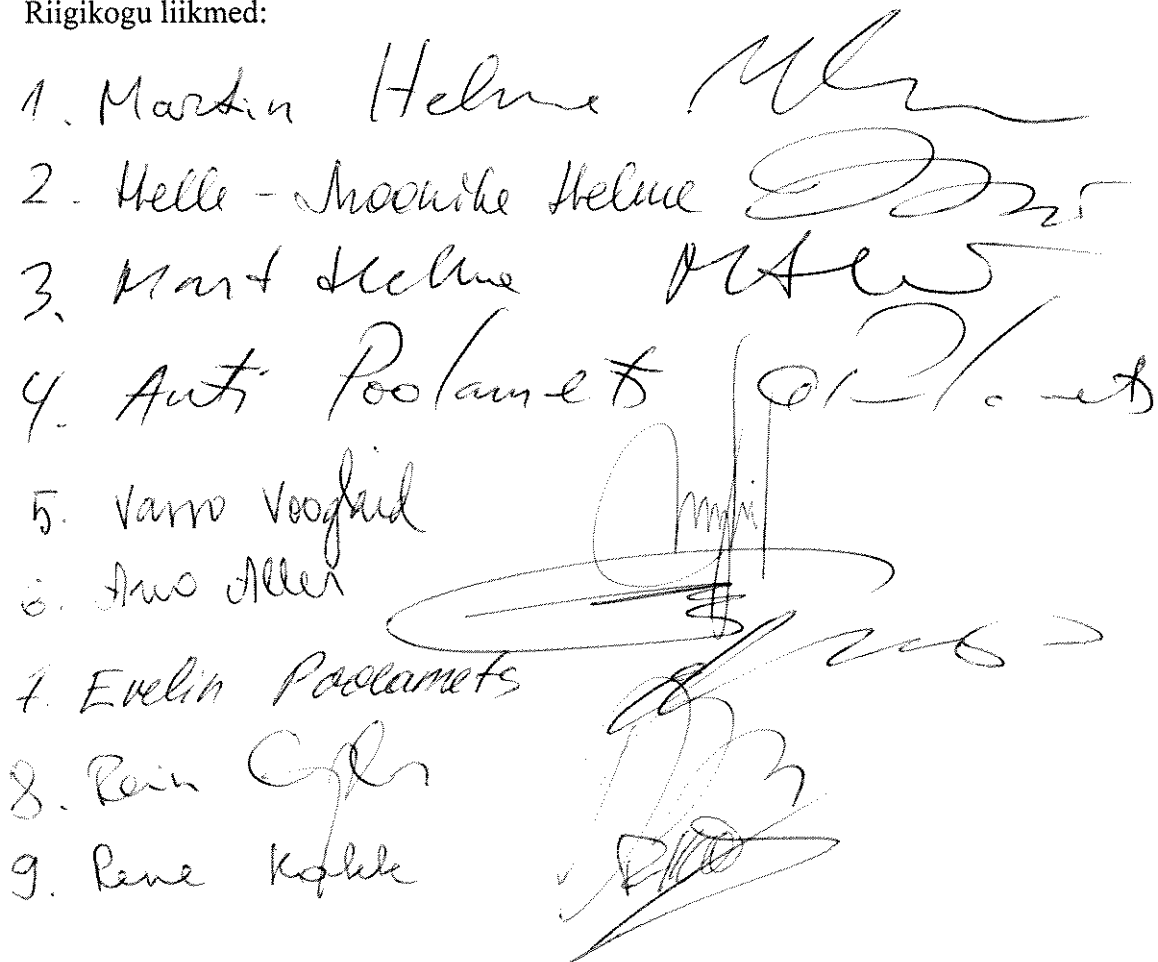 Riigikogu liikmed:
1. Martin Helme
2. Helle-Moonike Helme
3. Mart Helme
4. Anti Poolamets
5. Varro Vooglaid
6. Arvo Aller
7. Evelin Poolamets
8. Rain Epler
9. Rene Kokk